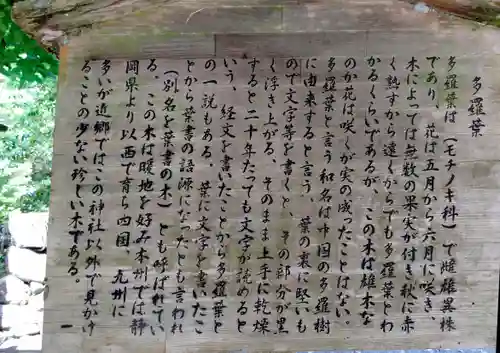 多羅葉
多羅葉は（モチノキ科）で雌雄異株
であり、花は五月から六月に咲き
木によっては無数の果実が付き秋に赤
く熟すから遠くからでも多羅葉とわ
かるくらいであるが、この木は雄木な
のか花は咲くが実の成ったことはない。
多羅葉と言う和名は中国の多羅樹
に由来すると言う、葉の裏に堅いも
ので文字等を書くと、その部分が黒
く浮き上がる、そのまま上手に乾燥
すると二十年たっても文字が読めると
いう、経文を書いたことから多羅葉
の一説もある、葉に文字を書いたこ
とから葉書の語源になったとも言われ
（別名を葉書の木）とも呼ばれてい
る。この木は暖地を好み本州では静
岡県より以西で育ち四国、九州に
多いが近郷ではこの神社以外で見かけ
ることの少ない珍しい木である。